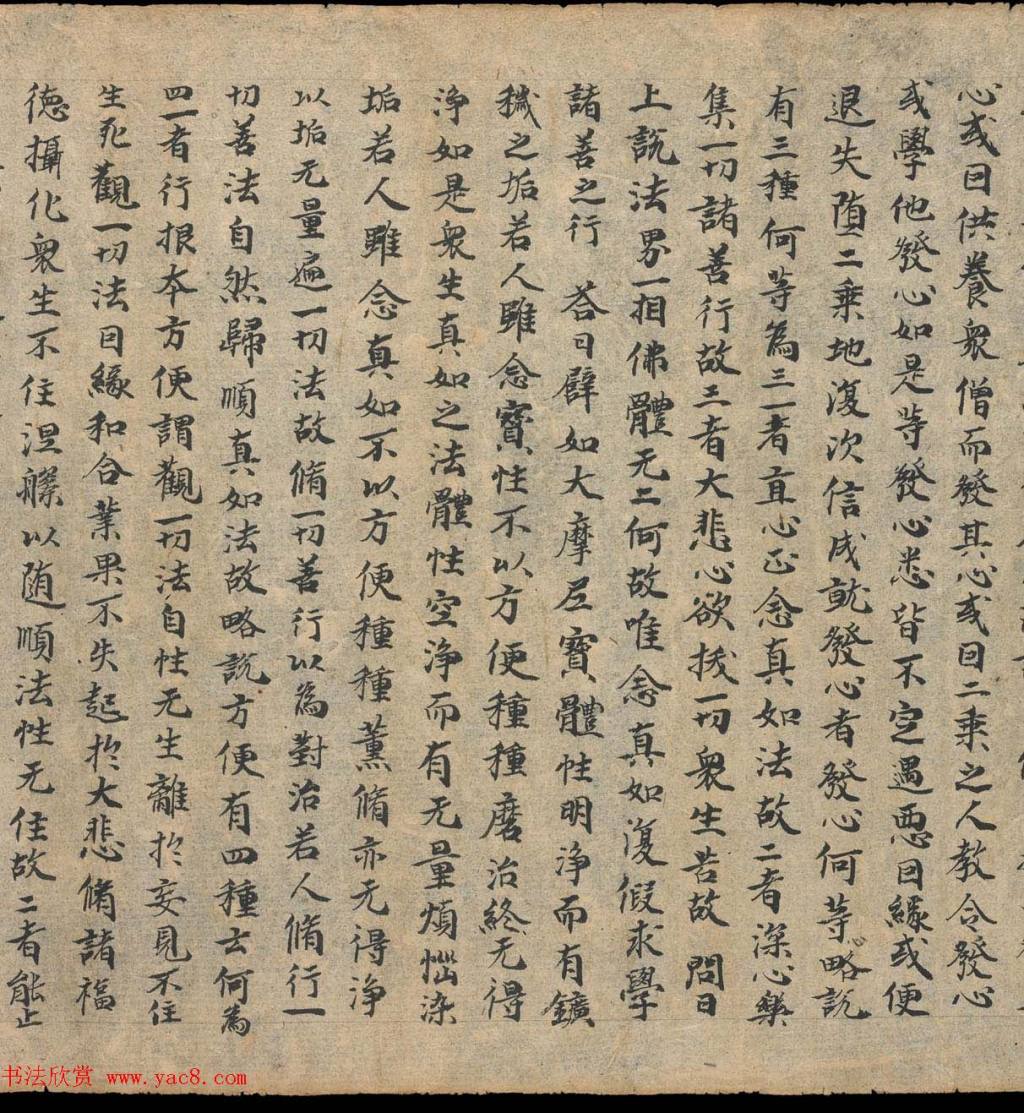 心或因供養衆僧而發其心或因二乘之人教令發心
或學他發心如是等發心悉皆不定遇惡因緣或便
退失堕二乘地復次信成就發心者發心何等略說
有三種何等為三一者直心正念真如法故二者深心樂
集一切諸善行故三者大悲心欲拔一切衆生苦故 問曰
上說法界一相佛體无二何故唯念真如復假求學
諸善之行 荅曰譬如大摩尼寶體性明淨而有鑛
穢之垢若人雖念寶性不以方便種種磨治終无得
淨如是衆生真如之法體性空淨而有无量煩惱染
垢若人雖念真如不以方便種種薰脩亦无得淨
以垢无量遍一切法故脩一切善行以為對治若人脩行一
切善法自然歸順真如法故略說方便有四種云何為
四一者行根本方便謂觀一切法自性无生離於妄見不住
生死觀一切法因緣和合業果不失起於大悲脩諸福
德攝化衆生不住涅槃以随順法性无住故二者能止
书法欣赏 www.yac8.com